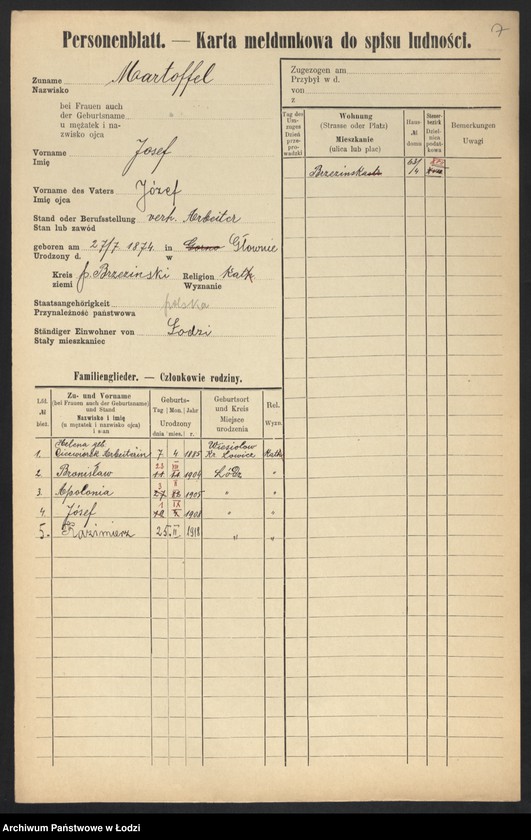 7
Personenblatt. — Karta meldunkowa do spisu ludności.
Zuname Martoffel
Nazwisko
bei Frauen auch
der Geburtsname
u mężatek i na-
zwisko ojca
Vorname Josef
Imię
Vorname des Vaters Józef
Imię ojca
Stand oder Berufsstellung verh. Arbeiter
Stan lub zawód
geboren am 27/7 1874 in Głownie
Urodzony d. w
Kreis p. Brzezinski Religion Kath.
ziemi Wyznanie
Staatsangehörigkeit polska
Przynależność państwowa
Ständiger Einwohner von Łodzi
Stały mieszkaniec
Zugezogen am
Przybył w d.
von
z
Tag des Um-zuges Dzień prze-prowadzki
Wohnung
(Strasse oder Platz)
Mieszkanie
(ulica lub plac)
Haus-
№
domu
Steuer-bezirk Dziel-nica podat-kowa
Bemerkungen
Uwagi
Brzezinska 68/14
Familienglieder. — Członkowie rodziny.
Lfd. № bież.
Zu- und Vorname
(bei Frauen auch der Geburtsname)
und Stand
Nazwisko i imię
(u mężatek i nazwisko ojca)
i stan
Geburts-
Tag Mon. Jahr
Urodzony
dnia mies. r.
Geburtsort
und Kreis
Miejsce
urodzenia
Rel.
Wyzn.
Helena geb.
1. Arbeiterin 7 4 1885 Kr. Łowicz Kath.
2. Bronisław 23 VII 1904 Łódz "
3. Apolonia 3 X 1905 " "
4. Józef 1 IX 1908 " "
5. Kazimierz 25. II 1918 " "
Archiwum Państwowe w Łodzi